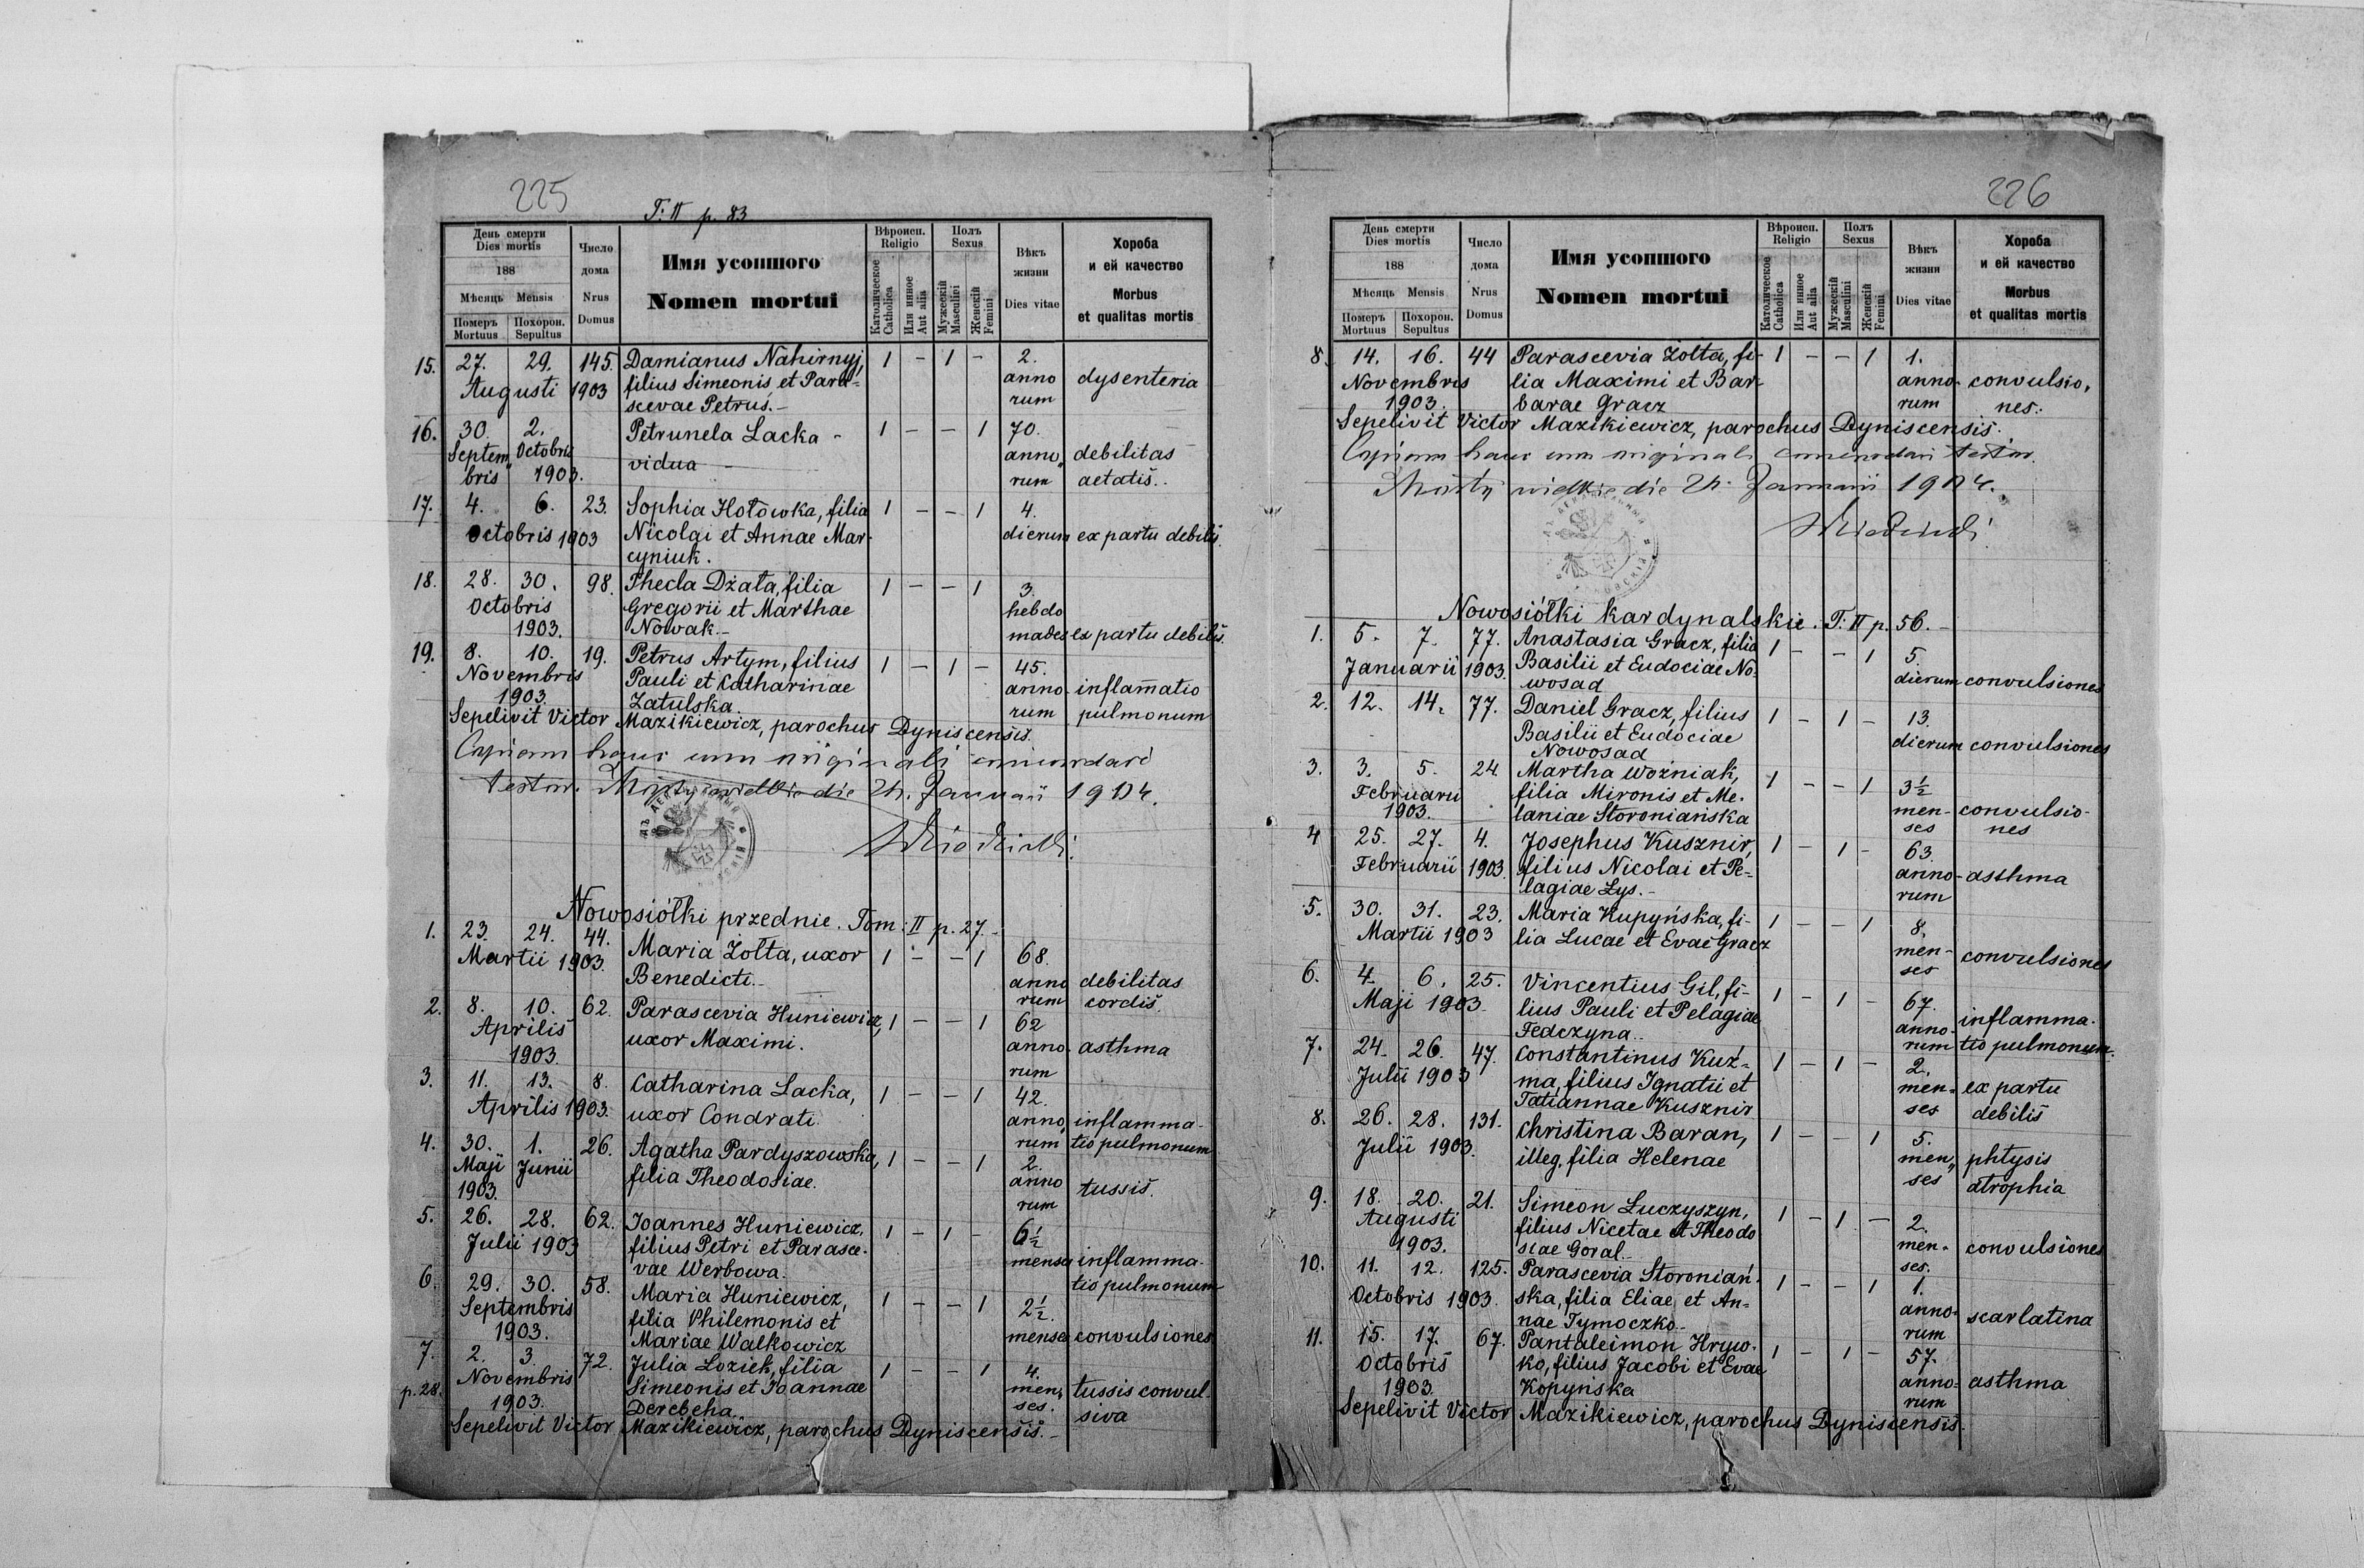 225
T: II p. 83
День смерти
Dies mortis
188
Мѣсяць Mensis
Померъ Mortuus
Похорон. Sepultus
Число дома
Nrus Domus
Имя усопшого
Nomen mortui
Вѣроисп.
Religio
Католическое Catholica
Или инное Aut alia
Полъ
Sexus
Мужескій Masculini
Женскій Femini
Вѣкъ жизни
Dies vitae
Хороба
и ей качество
Morbus
et qualitas mortis
15. 27. 29. 145. Damianus Nahirnyj, 1 - 1 - 2.
Augusti 1903 filius Simeonis et Para= anno dysenteria
scevae Petrus.- rum
16. 30. 2. Petrunela Lacka - 1 - - 1 70.
Septem„ Octobris vidua - anno„ debilitas
bris 1903. rum aetatis..
17. 4. 6. 23. Sophia Hołowka, filia 1 - - 1 4.
Octobris 1903 Nicolai et Annae Mar- dierum ex partu debilis.
cyniuk.
18. 28. 30. 98. Thecla Dżała, filia 1 - - 1 3.
Octobris Gregorii et Marthae hebdo
1903. Nowak.- mades ex partu debilis.
19. 8. 10. 19. Petrus Artym, filius 1 - 1 - 45.
Novembris Pauli et Katharinae anno- inflam̄atio
1903. Zatulska. rum pulmonum
Sepelivit Victor Mazikiewicz, parochus Dyniscensis.
Copiam hanc cum originali concordare
testor. Mosty wielkie die 24. Januarii 1904.
Nowosiółki przednie. Tom: II p. 27.-
1. 23. 24. 44. Maria Żołta, uxor 1 - - 1 68.
Martii 1903. Benedicti.- anno debilitas
rum cordis.
2. 8. 10. 62. Parascevia Huniewicz, 1 - - 1 62
Aprilis uxor Maximi. anno- asthma
1903. rum
3. 11. 13. 8. Catharina Lacka, 1 - - 1 42.
Aprilis 1903. uxor Condrati. anno„ inflamma-
rum tio pulmonum
4. 30. 1. 26. Agatha Pardyszowska, 1 - - 1 2.
Maji Junii filia Theodosiae. anno tussis.
1903. rum
5. 26. 28. 62. Joannes Huniewicz, 1 - 1 - 6½
Julii 1903 filius Petri et Parasce- menses inflamma-
vae Werbowa. tio pulmonum
6. 29. 30. 58. Maria Huniewicz, 1 - - 1 2½.
Septembris filia Philemonis et
1903. Mariae Walkowicz menses convulsiones
7. 2. 3. 72. Julia Loziek, filia 1 - - 1 4.
Novembris Simeonis et Joannae men„ tussis convul-
p. 28. 1903. Derebeha. ses. siva
Sepelivit Victor Mazikiewicz, parochus Dyniscensis.-
226
День смерти
Dies mortis
188
Мѣсяць Mensis
Померъ Mortuus
Похорон. Sepultus
Число дома
Nrus Domus
Имя усопшого
Nomen mortui
Вѣроисп.
Religio
Католическое Catholica
Или инное Aut alia
Полъ
Sexus
Мужескій Masculini
Женскій Femini
Вѣкъ жизни
Dies vitae
Хороба
и ей качество
Morbus
et qualitas mortis
8. 14. 16. 44 Parascevia Żołta, fi- 1 - - 1 1.
Novembris lia Maximi et Bar- anno- convulsio„
1903. barae Gracz rum nes.
Sepelivit Victor Mazikiewicz, parochus Dyniscensis.
Copiam hanc cum originali concordare testor.
Mosty wielkie die 24. Januarii 1904.
Nowosiółki kardynalskie. T: II p. 56.-
1. 5. 7. 77. Anastasia Gracz, filia 1 - - 1 5.
Januarii 1903. Basilii et Eudociae No- dierum convulsiones
wosad
2. 12. 14. 77. Daniel Gracz, filius 1 - 1 - 13.
Basilii et Eudociae dierum convulsiones
Nowosad
3. 3. 5. 24. Martha Woźniak, 1 - - 1 3½
Februarii filia Mironis et Me- men- convulsio-
1903. laniae Storoniańska ses nes
4 25. 27. 4. Josephus Kusznir, 1 - 1 - 63.
Februarii 1903. filius Nicolai et Pe= anno- asthma
lagiae Lys.- rum
5. 30. 31. 23. Maria Kupyńska, fi- 1 - - 1 8.
Martii 1903 lia Lucae et Evae Gracz men- convulsiones
ses
6. 4. 6. 25. Vincentius Gil, fi- 1 - 1 - 67.
Maji 1903. lius Pauli et Pelagiae anno- inflamma-
Fedczyna.. rum tio pulmonum.
7. 24. 26. 47. Constantinus Kuź= 1 - 1 - 2.
Julii 1903 ma, filius Ignatii et men= ex partu
Tatiannae Kusznir ses debilis
8. 26. 28. 131. Christina Baran, 1 - - 1 5.
Julii 1903. illeg. filia Helenae men„ phtysis
ses atrophia
9. 18. 20. 21. Simeon Łuczyszyn, 1 - 1 - 2.
Augusti filius Nicetae et Theodo men- convulsiones
1903. siae Goral.- ses.
10. 11. 12. 125. Parascevia Storoniań- 1 - - 1 1.
Octobris 1903. ska, filia Eliae et An= anno= scarlatina
nae Tymoczko.. rum
11. 15. 17. 67. Pantaleimon Hryw- 1 - 1 - 57.
Octobris ko, filius Jacobi et Evae anno= asthma
1903. Kopyńska rum
Sepelivit Victor Mazikiewicz, parochus Dyniscensis.